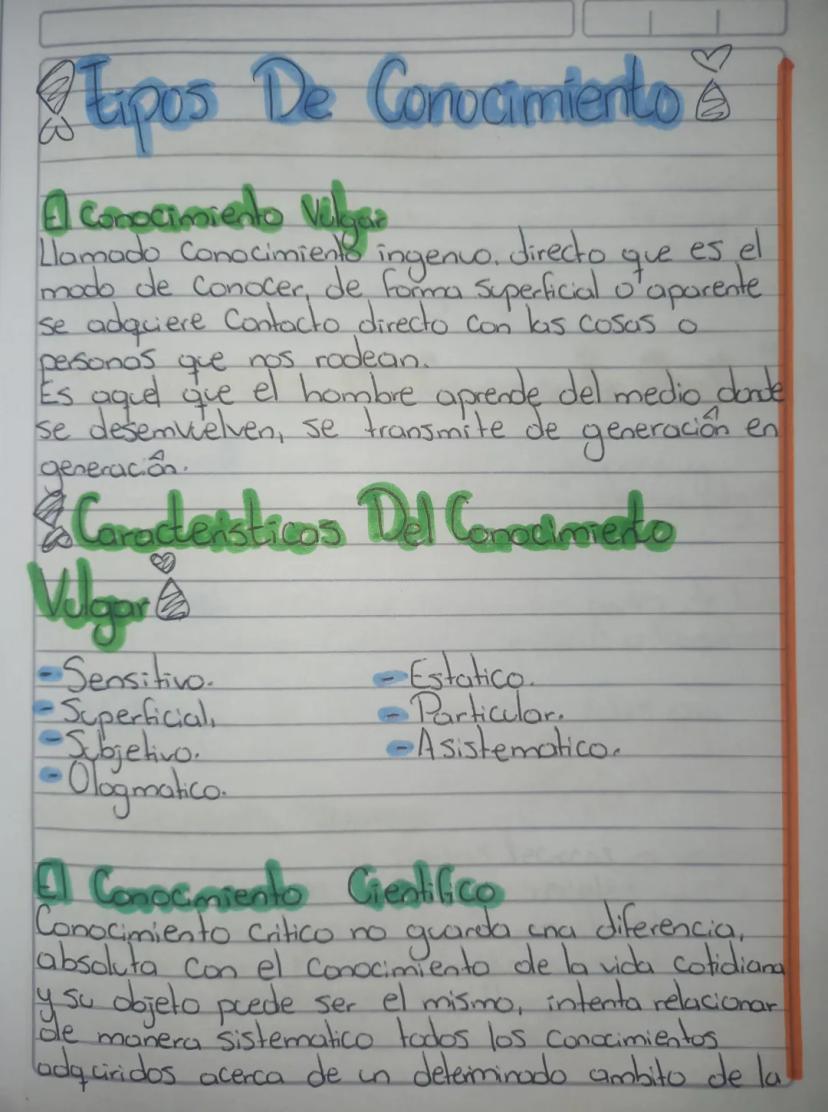 Tipos De Conocimiento
El Conocimiento Vulgar
Llamado Conocimiento ingenuo, directo que es el
modo de Conocer, de forma Superficial o aparente
se adquiere Contacto directo con las cosas o
personas que nos rodean.
Es aquel que el hombre aprende del medio donde
se desemvuelven, se transmite de generación en
generación.
Caracteristicas Del Conocimiento
Vulgar
- Sensitivo.
- Superficial,
- Subjetivo.
- Ologmatico.
- Estatico.
- Particular.
- Asistematico.
El Conocimiento Cientifico
Conocimiento Critico no guarda una diferencia,
absoluta con el conocimiento de la vida cotidiana
y su objeto puede ser el mismo, intenta relacionar
de manera sistematico todos los conocimientos
adquiridos acerca de un determinado ambito de la